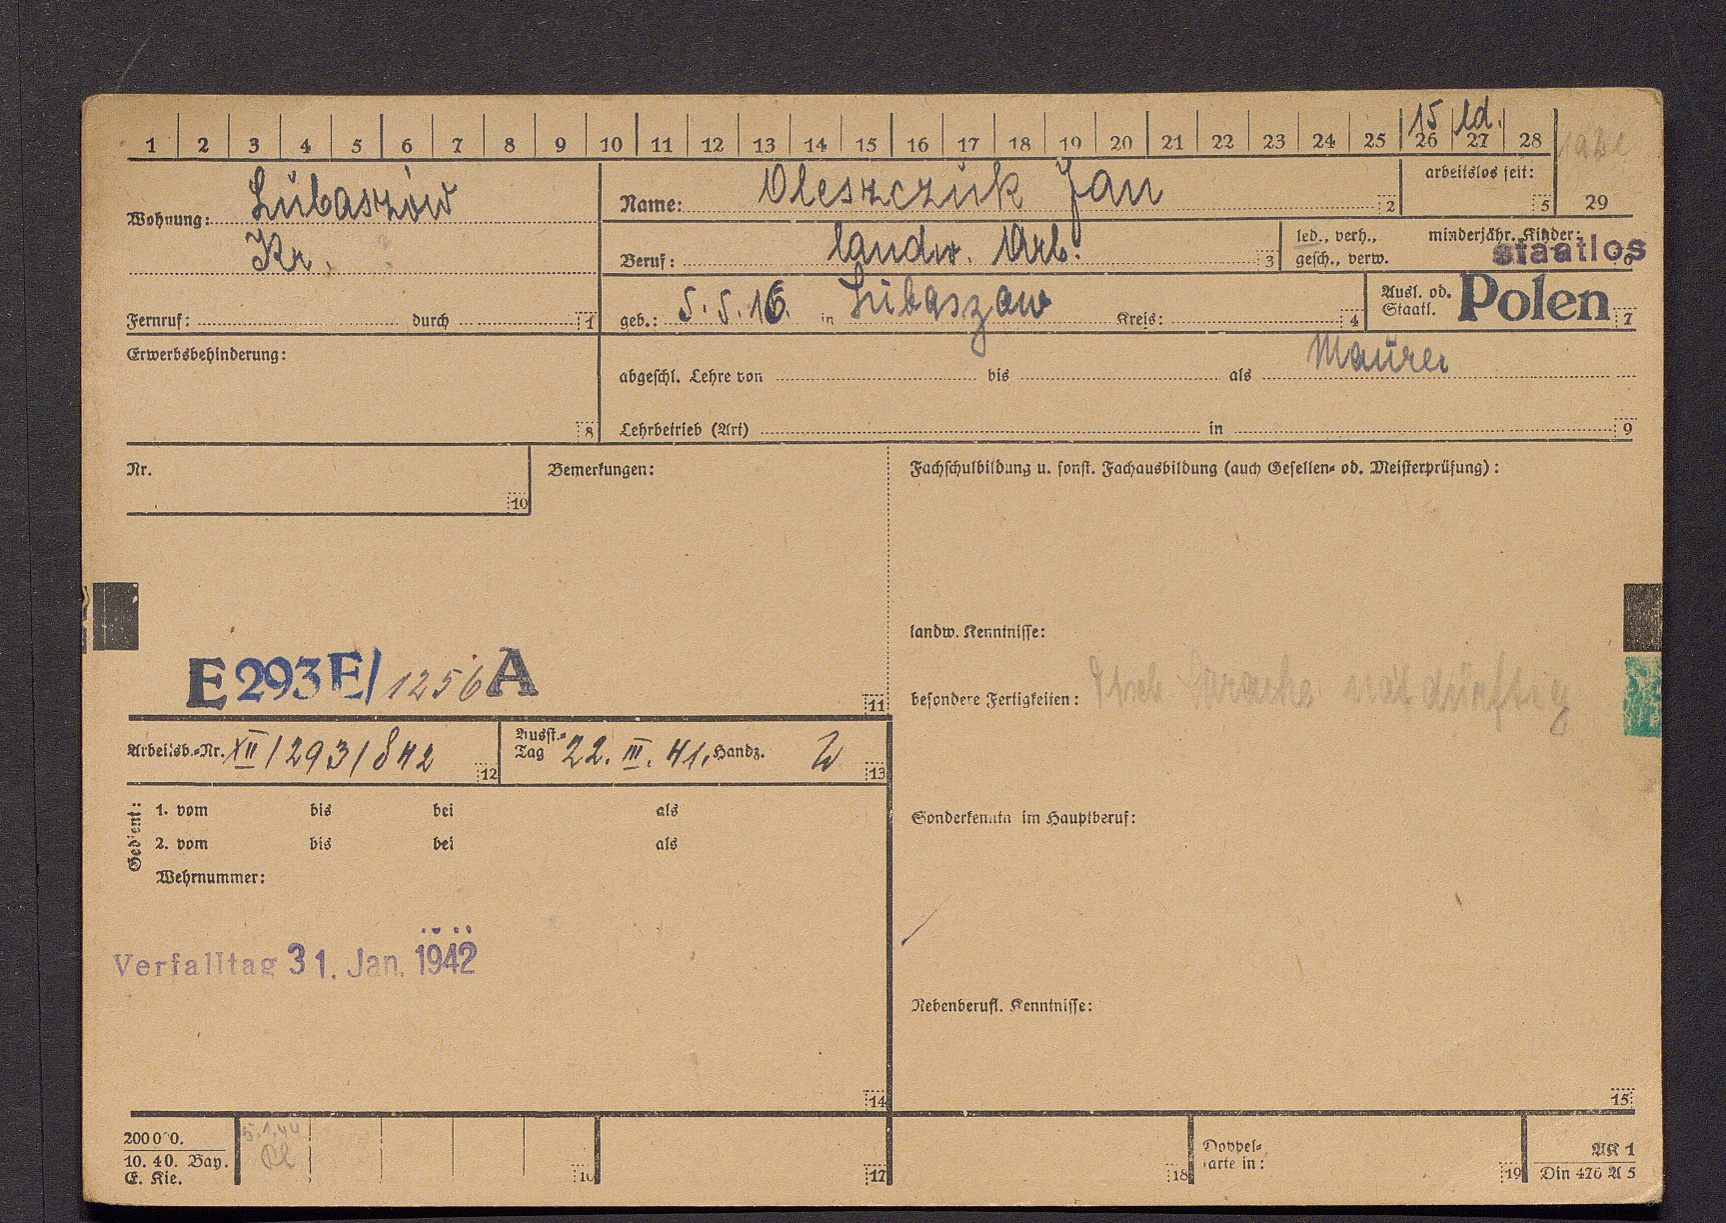 15 ld.
1 2 3 4 5 6 7 8 9 10 11 12 13 14 15 16 17 18 19 20 21 22 23 24 25 26 27 28
Wohnung: Lubaszów
Kr.
Fernruf: durch 1
Name: Oleszczuk Jan 2
arbeitslos seit: 5
29
Beruf: landw. Arb. 3
led., verh.,
gesch., verw.
minderjähr. Kinder: 6
staatlos
geb.: 5. 5. 16. in Lubaszow Kreis: 4
Ausl. od.
Staatl. Polen 7
Erwerbsbehinderung: 8
abgeschl. Lehre von bis als Maurer
Lehrbetrieb (Art) in 9
Nr. 10
Bemerkungen:
Fachschulbildung u. sonst. Fachausbildung (auch Gesellen- od. Meisterprüfung):
landw. Kenntnisse:
E 293 E/ 1256 A 11
besondere Fertigkeiten: Dtsch. Sprache notdürftig
Arbeitsb.-Nr. XII/293/842 12
Ausst.-
Tag 22. III. 41. Handz. 13
Gedient: 1. vom bis bei als
2. vom bis bei als
Wehrnummer:
Sonderkenntn im Hauptberuf:
Verfalltag 31. Jan. 1942
Nebenberufl. Kenntnisse:
14
15
200000.
10. 40. Bay.
E. Kie.
5.1.44
16
17
18
Doppel-
karte in: 19
AK 1
Din 476 A 5